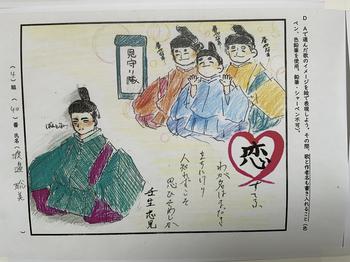 D　Aで選んだ歌のイメージを絵で表現しよう。その際、歌と作者名も書き入れること（色
ペン、色鉛筆を使用。鉛筆・シャーペン不可）。
恋すてふ
わが名はまだき
立ちにけり
人知れずこそ
思ひそめしか
壬生忠見
見守り隊
（4）組（40）番　氏名